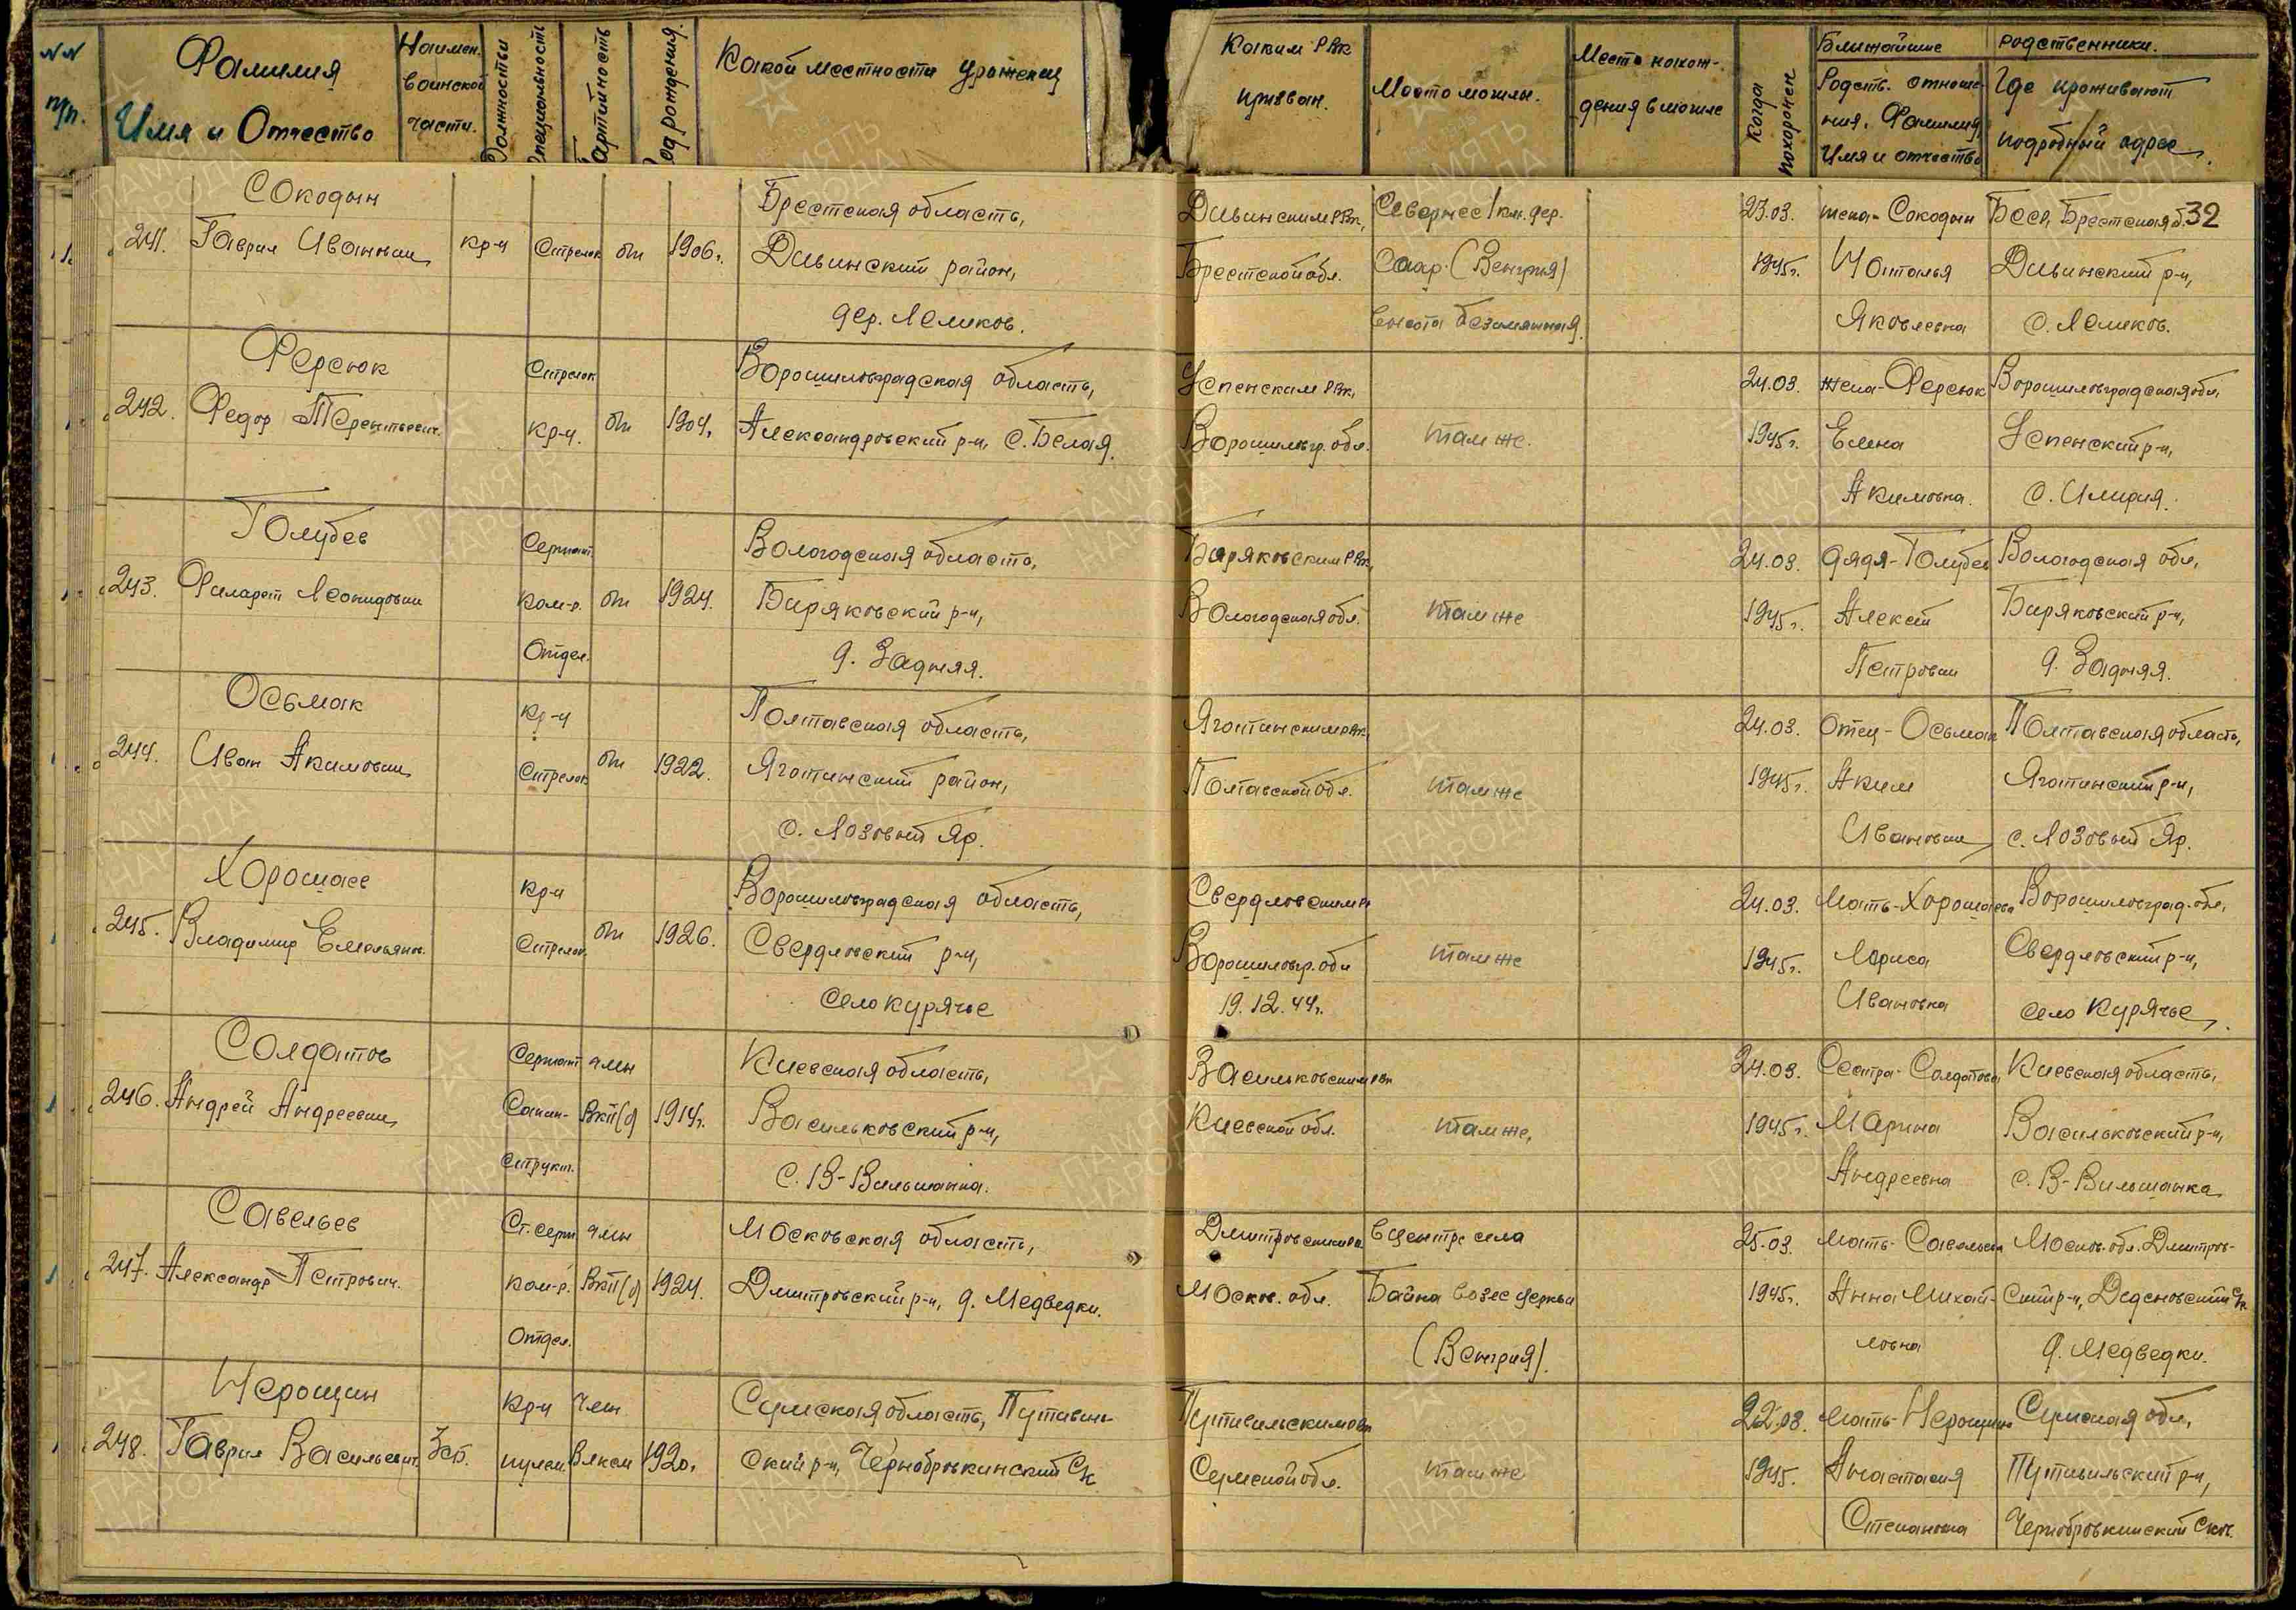 NN п/п.
Фамилия Имя и Отчество
Наимен. воинской части.
Должность и специальность
Партийность
Год рождения.
Какой местности уроженец
Каким РВК призван.
Место могилы.
Место нахождения в могиле
Когда похоронен
Ближайшие родственники.
Родств. отношения, Фамилия, Имя и отчество
Где проживают подробный адрес.
32
Сокодын
Брестская область,
Дивинским РВК,
Севернее 1 км. дер.
23.03.
жена- Сокодын
Бсср, Брестская о.
241. Гаврил Иванович
кр-ц
Стрелок
б/п
1906г.
Дивинский район,
Брестской обл.
Саар. (Венгрия)
1945г.
Наталья
Дивинский р-н,
дер. Леликов.
высота безымянная.
Яковлевна
с. Леликов.
Ферсюк
Стрелок
Ворошиловградская область,
Успенским РВК,
24.03.
жена- Ферсюк
Ворошиловградская обл,
242. Федор Терентьевич.
кр-ц.
б/п
1904г.
Александровский р-н, с. Белая.
Ворошиловгр. обл.
там же.
1945г.
Елена
Успенский р-н,
Акимовна.
с. Илирия.
Голубев
Сержант.
Вологодская область,
Биряковским РВК,
24.03.
дядя- Голубев
Вологодская обл,
243. Филарет Леонидович
Ком-р.
б/п
1924.
Биряковский р-н,
Вологодская обл.
там же
1945г.
Алексей
Биряковский р-н,
Отдел.
д. Задняя.
Петрович
д. Задняя.
Осьмак
Кр-ц
Полтавская область,
Яготинским РВК.
24.03.
Отец- Осьмак
Полтавская область,
244. Иван Акимович
Стрелок
б/п
1922.
Яготинский район,
Полтавской обл.
там же
1945г.
Аким
Яготинский р-н,
с. Лозовый Яр.
Иванович
с. Лозовый Яр.
Хорошаев
Кр-ц
Ворошиловградская область,
Свердловским
24.03.
Мать- Хорошаева
Ворошиловград. обл,
245. Владимир Емельянов.
Стрелок.
б/п
1926.
Свердловский р-н,
Ворошиловгр. обл
там же
1945г.
Лариса
Свердловский р-н,
село Курячье
19.12.44г.
Ивановна
село Курячье.
Солдатов
Сержант
член
Киевская область,
Васильковским РВК
24.03.
Сестра- Солдатова
Киевская область,
246. Андрей Андреевич
Санин-
ВКП(б)
1914г.
Васильковский р-н,
Киевской обл.
там же,
1945г.
Марина
Васильковский р-н,
структ.
с. В-Вильшанка.
Андреевна
с. В-Вильшанка
Савельев
Ст. серж
член
Московская область,
Дмитровским
в центре села
25.03.
Мать- Савельева
Москов. обл. Дмитров-
247. Александр Петрович.
Ком-р.
ВКП(б)
1924.
Дмитровский р-н, д. Медведки.
Москов. обл.
Байна возле церкви
1945г.
Анна Михай-
ский р-н, Деденовский с/с
Отдел.
(Венгрия).
ловна
д. Медведки.
Нерощин
Кр-ц
Член
Сумская область, Путивль-
Путивльским РВК
22.03.
Мать- Нерощина
Сумская обл,
248. Гаврил Васильевич
3сб.
пулем.
ВЛКСМ
1920г
ский р-н, Чернобровкинский с/с
Сумской обл.
там же
1945.
Анастасия
Путивльский р-н,
Степановна
Чернобровкинский с/сов.
ПАМЯТЬ НАРОДА